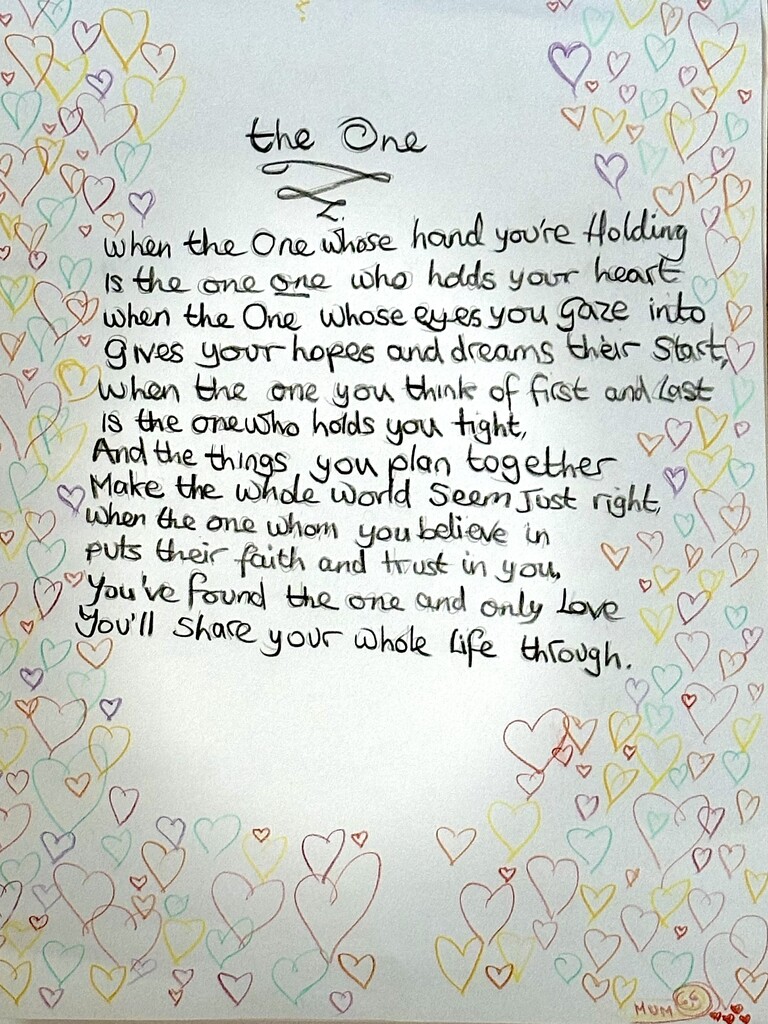 the One
When the One whose hand you're Holding
Is the one one who holds your heart
when the One whose eyes you gaze into
Gives your hopes and dreams their Start,
When the one you think of first and Last
Is the one who holds you tight,
And the things you plan together
Make the whole world Seem Just right,
When the one whom you believe in
puts their faith and trust in you,
You've found the one and only Love
You'll Share your whole Life through.
MUM